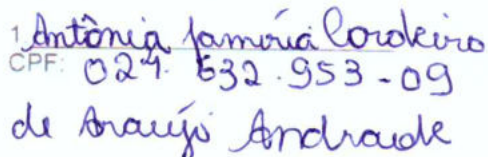 1. Antônia Jamória Cordeiro
CPF: 021.632.953-09
de Araújo Andrade